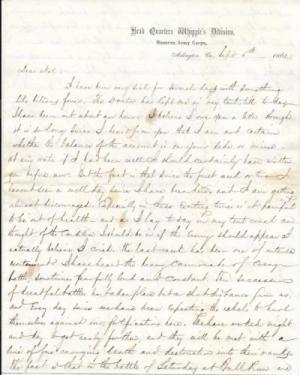 Head Quarters Whipple's Division,
Reserve Army Corps,
Arlington Va. Sept 5th 1862
Dear Nat:
I have been very sick for several days with something
like bilious fever. The Doctor has kept me in my tent till to day
I have been out about an hour. I believe I owe you a letter though
it is so long since I heard from you that I am not certain
whether the balance of the account is on your side or mine.
at any rate if I had been well I should certainly have written
you before now. But the fact is that since the first week or two I
have not seen a well day since I have been here, and I am getting
almost discouraged. Especially in these exciting times is it painful
to be out of health. and as I lay to day in my tent weak and
thought of the
actually believe I
excitement. I have heard the heavy cannonade of every
battle, sometimes fearfully loud and constant. The succession
of dreadful battles have taken place but a short distance from us,
and every day since we have been expecting the rebels to hurl
themselves against our fortifications here. We have worked night
and day to get ready for them, and they will be met with a
line of fire carrying death and destruction into their ranks.
the fact is that in the battle of Saturday at Bull Run we